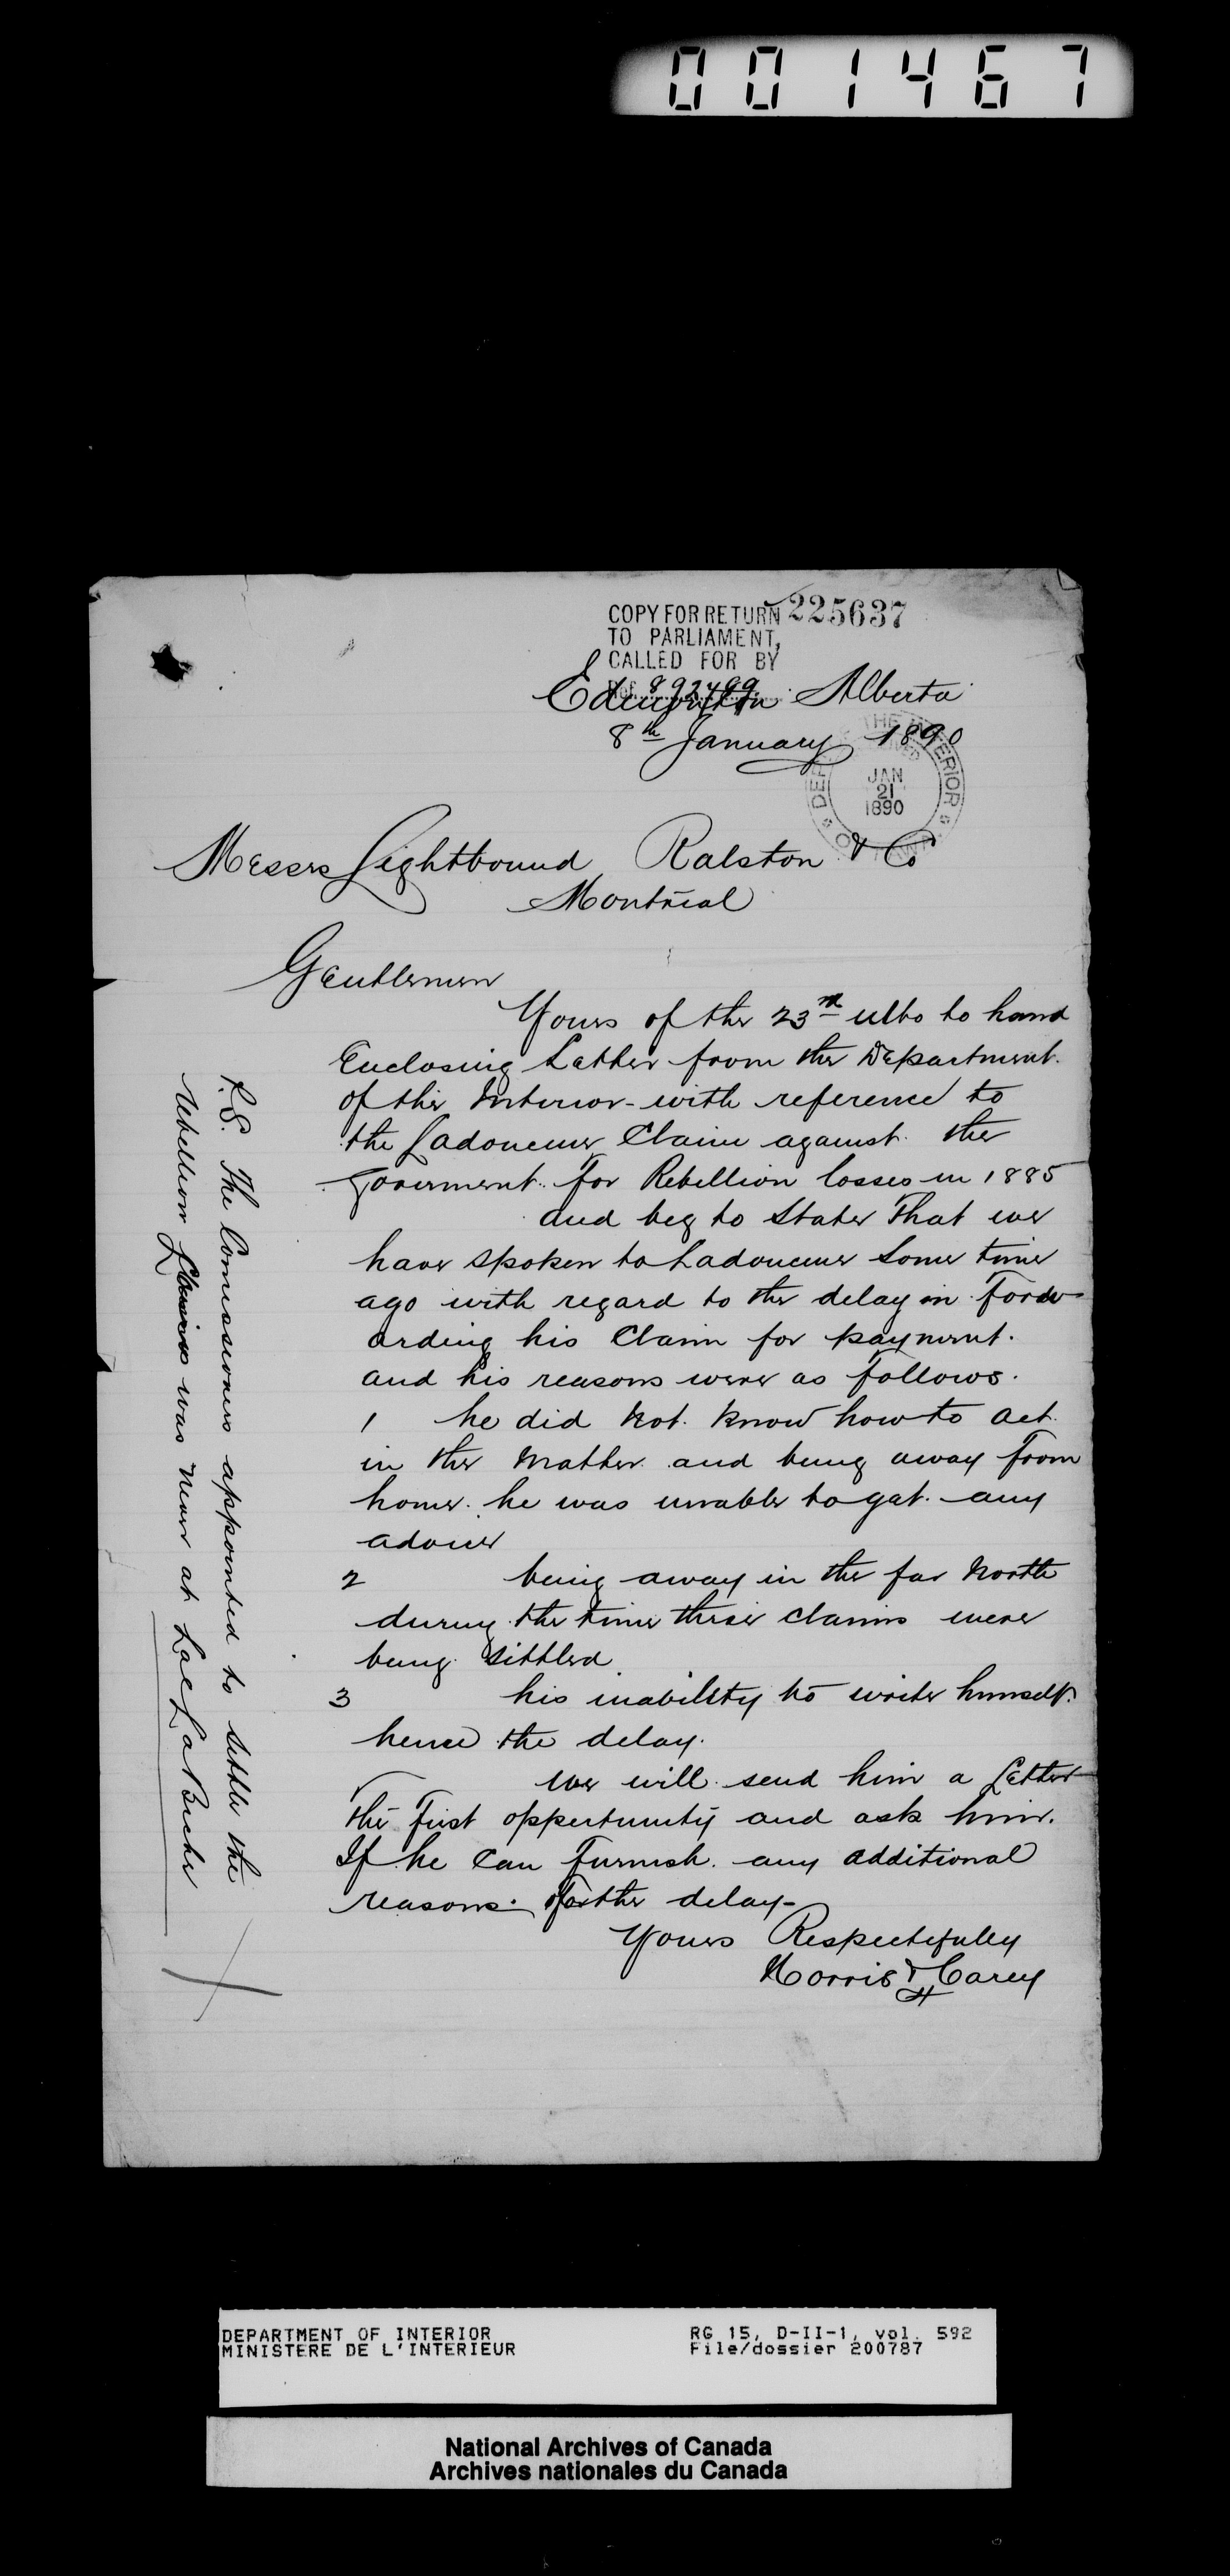 001467
COPY FOR RETURN 225637
TO PARLIAMENT,
CALLED FOR BY
Ref. 892499
Edmonton Alberta
8th January 1890
DEPT THE INTERIOR
JAN
21
1890
OTTAWA
Messrs Lightbound Ralston & Co
Montreal
Gentlemen
Yours of the 23rd ulto to hand
Enclosing Letter from the Department.
of the Interior - with reference to
the Ladouceur Claim against the
Goverment. for Rebellion losses in 1885
and beg to State That we
have spoken to Ladouceur Some time
ago with regard to the delay in Forw
arding his Claim for payment.
and his reasons were as follows.
1 he did not know how to act.
in the Matter and being away from
home. he was unable to get any
advice
2 being away in the far North
during the time these claims were
being settled
3 his inability to write himself.
hence the delay.
We will send him a Letter
The first oppertunity and ask him.
If he Can Furnish any additional
reasons. for the delay -
Yours Respectifully
Norris & Carey
P.S. The Comissioners appointed to settle the
Rebellion Claims was never at Lac La Biche
DEPARTMENT OF INTERIOR
MINISTERE DE L'INTERIEUR
RG 15, D-II-1, vol. 592
File/dossier 200787
National Archives of Canada
Archives nationales du Canada